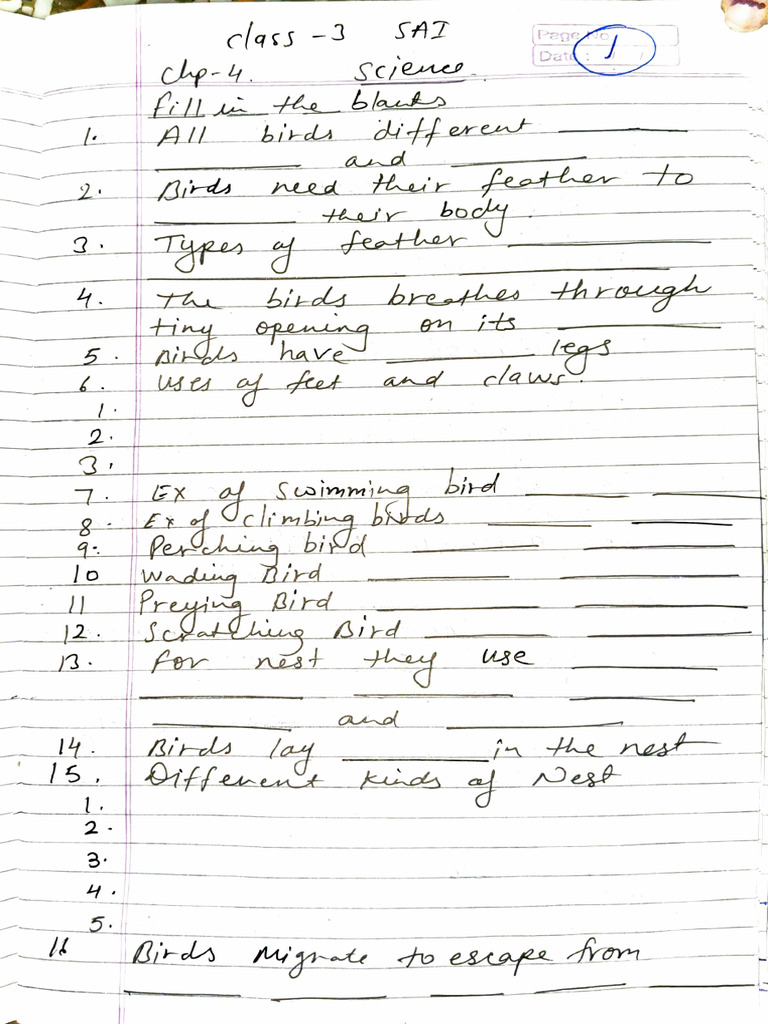 Class - 3 SAI
Page No
Date: / /
1
Chp-4. Science.
fill in the blanks
1. All birds different ________
________ and ________
2. Birds need their feather to
________ their body.
3. Types of feather ________
________ ________
4. The birds breathes through
tiny opening on its ________
5. Birds have ________ legs
6. uses of feet and claws.
1.
2.
3.
7. Ex of swimming bird ________ ________
8. Ex of climbing birds ________ ________
9. Perching bird ________ ________
10 Wading Bird ________ ________
11 Preying Bird ________ ________
12. Scratching Bird ________ ________
13. for nest they use ________
________ ________ ________
________ and ________
14. Birds lay ________ in the nest
15. Different kinds of Nest
1.
2.
3.
4.
5.
16 Birds Migrate to escape from
________ ________ ________ ________